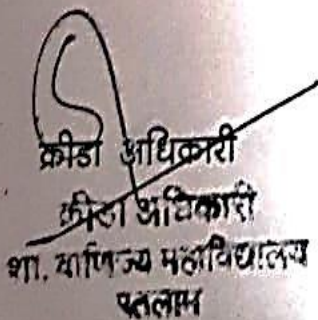 क्रीडा अधिकारी
क्रीडा अधिकारी
शा. वाणिज्य महाविद्यालय
रतलाम